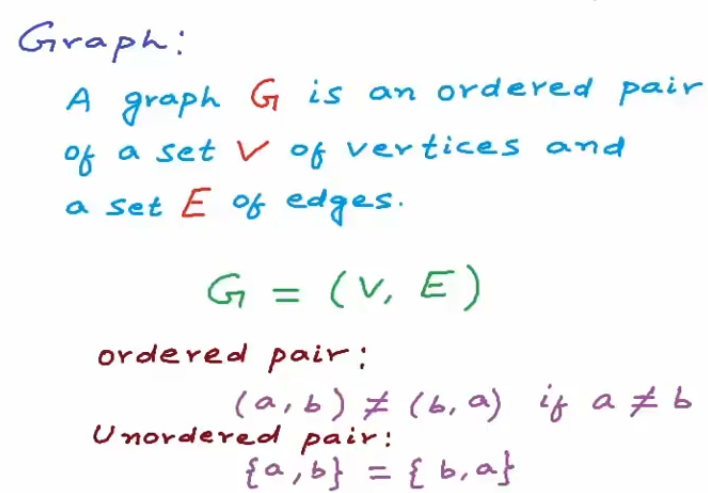 Graph:
A graph G is an ordered pair
of a set V of vertices and
a set E of edges.
G = (V, E)
ordered pair:
(a, b) ≠ (b, a) if a ≠ b
Unordered pair:
{a, b} = {b, a}